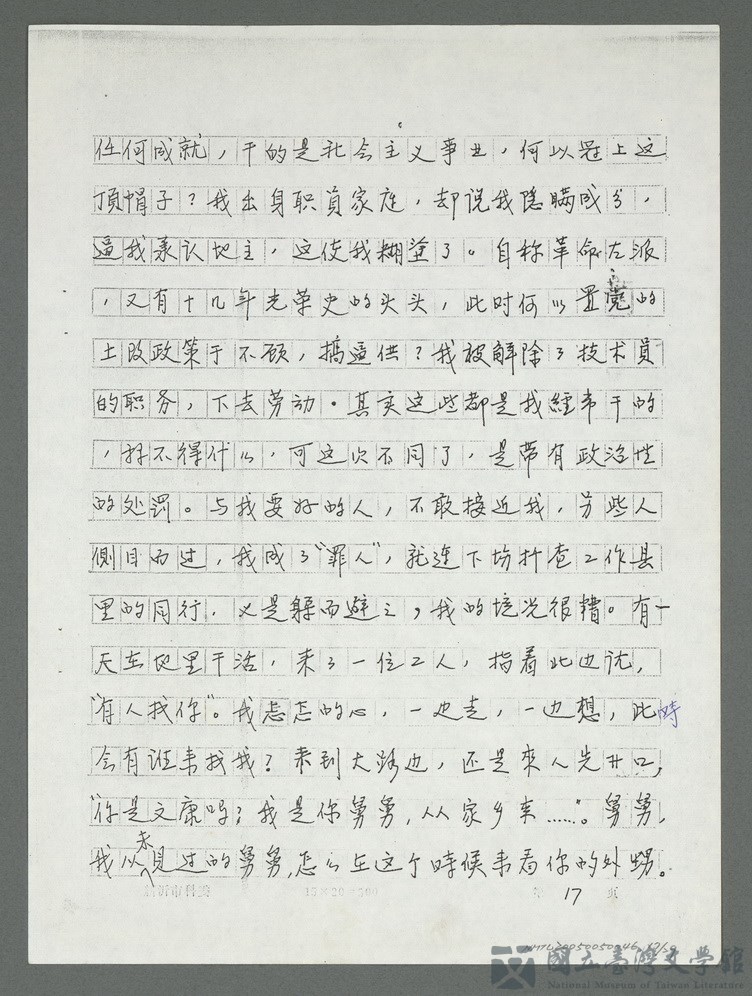 任何成就，干的是社会主义事业，何以冠上这
顶帽子？我出身职员家庭，却说我隐瞒成分，
逼我承认地主，这使我糊塗了。自称革命左派
，又有十几年光荣史的头头，此时何以置党的
土改政策于不顾，搞逼供？我被解除了技术员
的职务，下去劳动．其实这些都是我经常干的
，算不得什么，可这次不同了，是带有政治性
的处罚。与我要好的人，不敢接近我，另些人
侧目而过，我成了"罪人"，就连下场抖查工作县
里的同行，又是躲而避之，我的境况很糟。有一
天在地里干活，来了一位工人，指着北边说，
"有人找你"。我忐忑的心，一边走，一边想，此時
会有谁来找我？来到大路边，还是來人先开口，
"你是文康吗？我是你舅舅，从家乡来……"。舅舅，
我从未見过的舅舅，怎么在这个時候来看你的外甥。
15×20=300
第 17 页
NMTL20050050046 17/29
國立臺灣文學館
National Museum of Taiwan Literature